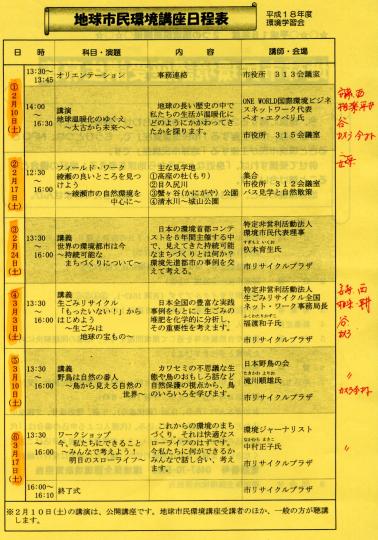 地球市民環境講座日程表
平成18年度
環境学習会
日 時
科目・演題
内 容
講師・会場
①
2月10日(土)
13:30~13:45
オリエンテーション
事務連絡
市役所 313会議室
14:00~16:30
講演
地球温暖化のゆくえ
~太古から未来へ~
地球の長い歴史の中で
私たちの生活が温暖化に
どのようにかかわってき
たかを探ります。
ONE WORLD国際環境ビジネ
スネットワーク代表
ペオ・エクベリ氏
市役所 315会議室
②
2月17日(土)
12:30~16:30
フィールド・ワーク
綾瀬の良いところを見つ
けよう
~綾瀬市の自然環境を
中心に~
主な見学地
①高座の杜(もり)
②目久尻川
③蟹ヶ谷(かにがや)公園
④清水川~城山公園
集合
市役所 312会議室
バス見学と自然散策
③
2月24日(土)
13:30~16:30
講義
世界の環境都市は今
~持続可能な
まちづくりについて~
日本の環境首都コンテ
ストを5年間主催する中
で、見えてきた持続可能
なまちづくりとは何か?
環境先進都市の事例を交
えて考える。
特定非営利活動法人
環境市民代表理事
すぎもと いくお
杦本育生氏
市リサイクルプラザ
④
3月3日(土)
13:30~16:30
講義
生ごみリサイクル
「もったいない!」から
はじめよう
~生ごみは
地球の宝もの~
日本全国の豊富な実践
事例をもとに、生ごみの
堆肥化を化学的に分析し、
その重要性を考えます。
特定非営利活動法人
生ごみリサイクル全国
ネット・ワーク事務局長
ふくわたりかずこ
福渡和子氏
市リサイクルプラザ
⑤
3月10日(土)
13:30~16:30
講義
野鳥は自然の番人
~鳥から見える自然の
世界~
カワセミの不思議な生
態や鳥のおもしろ話など
自然保護の視点から、鳥
のいろいろを学びます。
日本野鳥の会
たきかわ よりお
滝川順雄氏
市リサイクルプラザ
⑥
3月17日(土)
13:30~16:00
ワークショップ
今、私たちにできること
~みんなで考えよう!
明日のスローライフ~
これからの環境のまち
づくり。それは快適なスロ
ーライフのはずです。
今私たちに何ができるか
みんなで話し合い、考え
ます。
環境ジャーナリスト
なかむら まさこ
中村正子氏
市リサイクルプラザ
16:00~16:10
終了式
市リサイクルプラザ
※2月10日(土)の講演は、公開講座です。地球市民環境講座受講者のほか、一般の方が聴講
します。